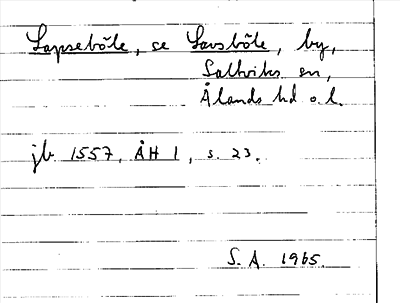 Lapseböle, se Lavsböle, by,
Saltviks sn,
Ålands hd o. l.
jb 1557, ÅH 1, s. 23.
S.A. 1965.